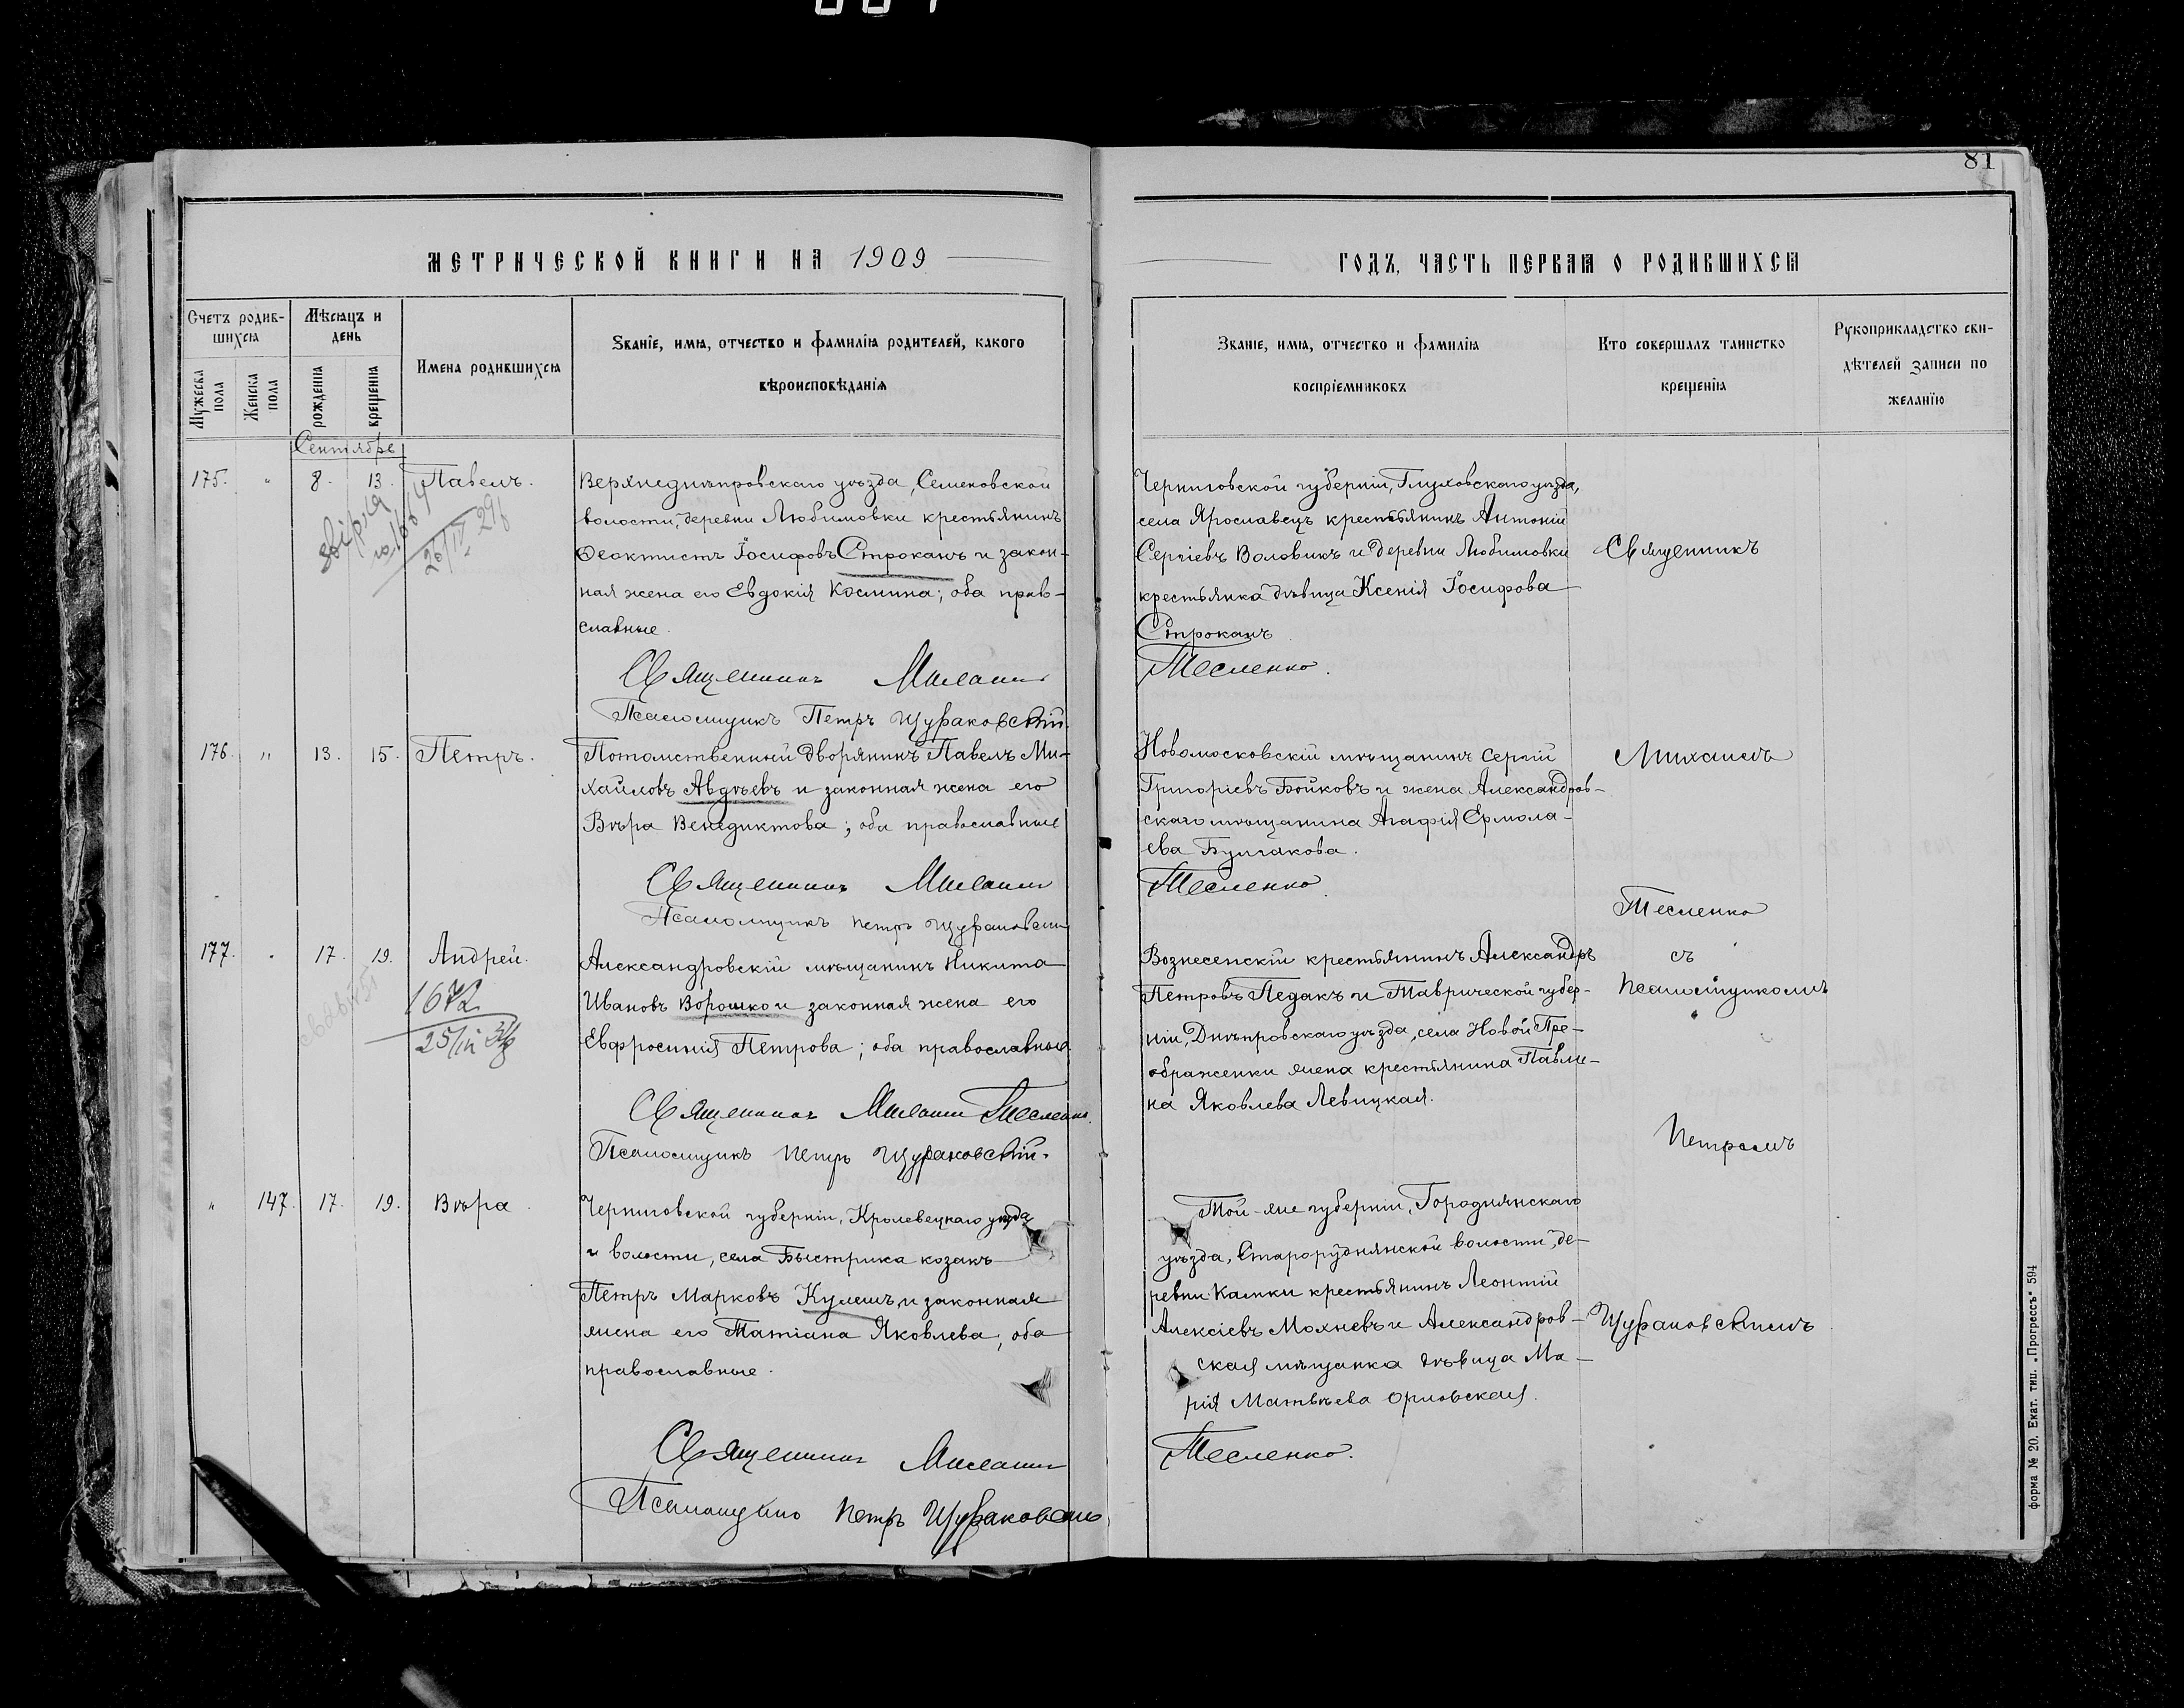 81
МЕТРИЧЕСКОЙ КНИГИ НА 1909
ГОДЪ, ЧАСТЬ ПЕРВАЯ О РОДИВШИХСЯ
Счетъ родив-
шихся
Мужеска пола
Женска пола
Мѣсяцъ и день
рожденія
крещенія
Имена родившихся
Званіе, имя, отчество и фамилія родителей, какого
вѣроисповѣданія
Званіе, имя, отчество и фамилія
воспріемниковъ
Кто совершалъ таинство
крещенія
Рукоприкладство сви-
дѣтелей записи по
желанію
Сентябрь
175. " 8. 13. Павелъ.
Верхнеднѣпровскаго уѣзда, Семеновской
волости, деревни Любимовки крестьянинъ
Ѳеоктистъ Іосифовъ Стро​канъ и закон-
ная жена его Евдокія Космина; оба прав-
славные.
Священникъ Михаилъ
Псаломщикъ Петръ Щураковскій.
Черниговской губерніи, Глуховскаго уѣзда,
села Ярославецъ крестьянинъ Антоній
Сергіевъ Воловикъ и деревни Любимовки
крестьянка дѣвица Ксенія Іосифова
Строканъ
Тесленко.
Священникъ
176. " 13. 15. Петръ.
Потомственный дворянинъ Павелъ Ми-
хайловъ Авдѣевъ и законная жена его
Вѣра Венедиктова; оба православные
Священникъ Михаилъ
Псаломщикъ Петръ Щураковскій
Новомосковскій мѣщанинъ Сергій
Григоріевъ Бойковъ и жена Александров-
скаго мѣщанина Агафія Ермола-
ева Булгакова.
Тесленко
Михаилъ
Тесленко
177. " 17. 19. Андрей.
1672
Александровскій мѣщанинъ Никита
Ивановъ Ворошко и законная жена его
Евфросинія Петрова; оба православные
Священникъ Михаилъ Тесленко.
Псаломщикъ Петръ Щураковскій.
Вознесенскій крестьянинъ Александръ
Петровъ Педакъ и Таврической губер-
ніи, Днѣпровскаго уѣзда, села Новой Пре-
ображенки жена крестьянина Павли-
на Яковлева Левицкая.
съ
псаломщикомъ
Петромъ
" 147. 17. 19. Вѣра
Черниговской губерніи, Кролевецкаго уѣзда
и волости, села Быстрика козакъ
Петръ Марковъ Кулешъ и законная
жена его Татіана Яковлева; оба
православные.
Священникъ Михаилъ
Псаломщикъ Петръ Щураковскій
Той-же губерніи, Городнянскаго
уѣзда, Староруднянской волости, де-
ревни Камки крестьянинъ Леонтій
Алексіевъ Мохневъ и Александров-
ская мѣщанка дѣвица Ма-
рія Матвѣева Орловская.
Тесленко.
Щураковскимъ
Форма № 20. Екат. тип. „Прогрессъ" 594